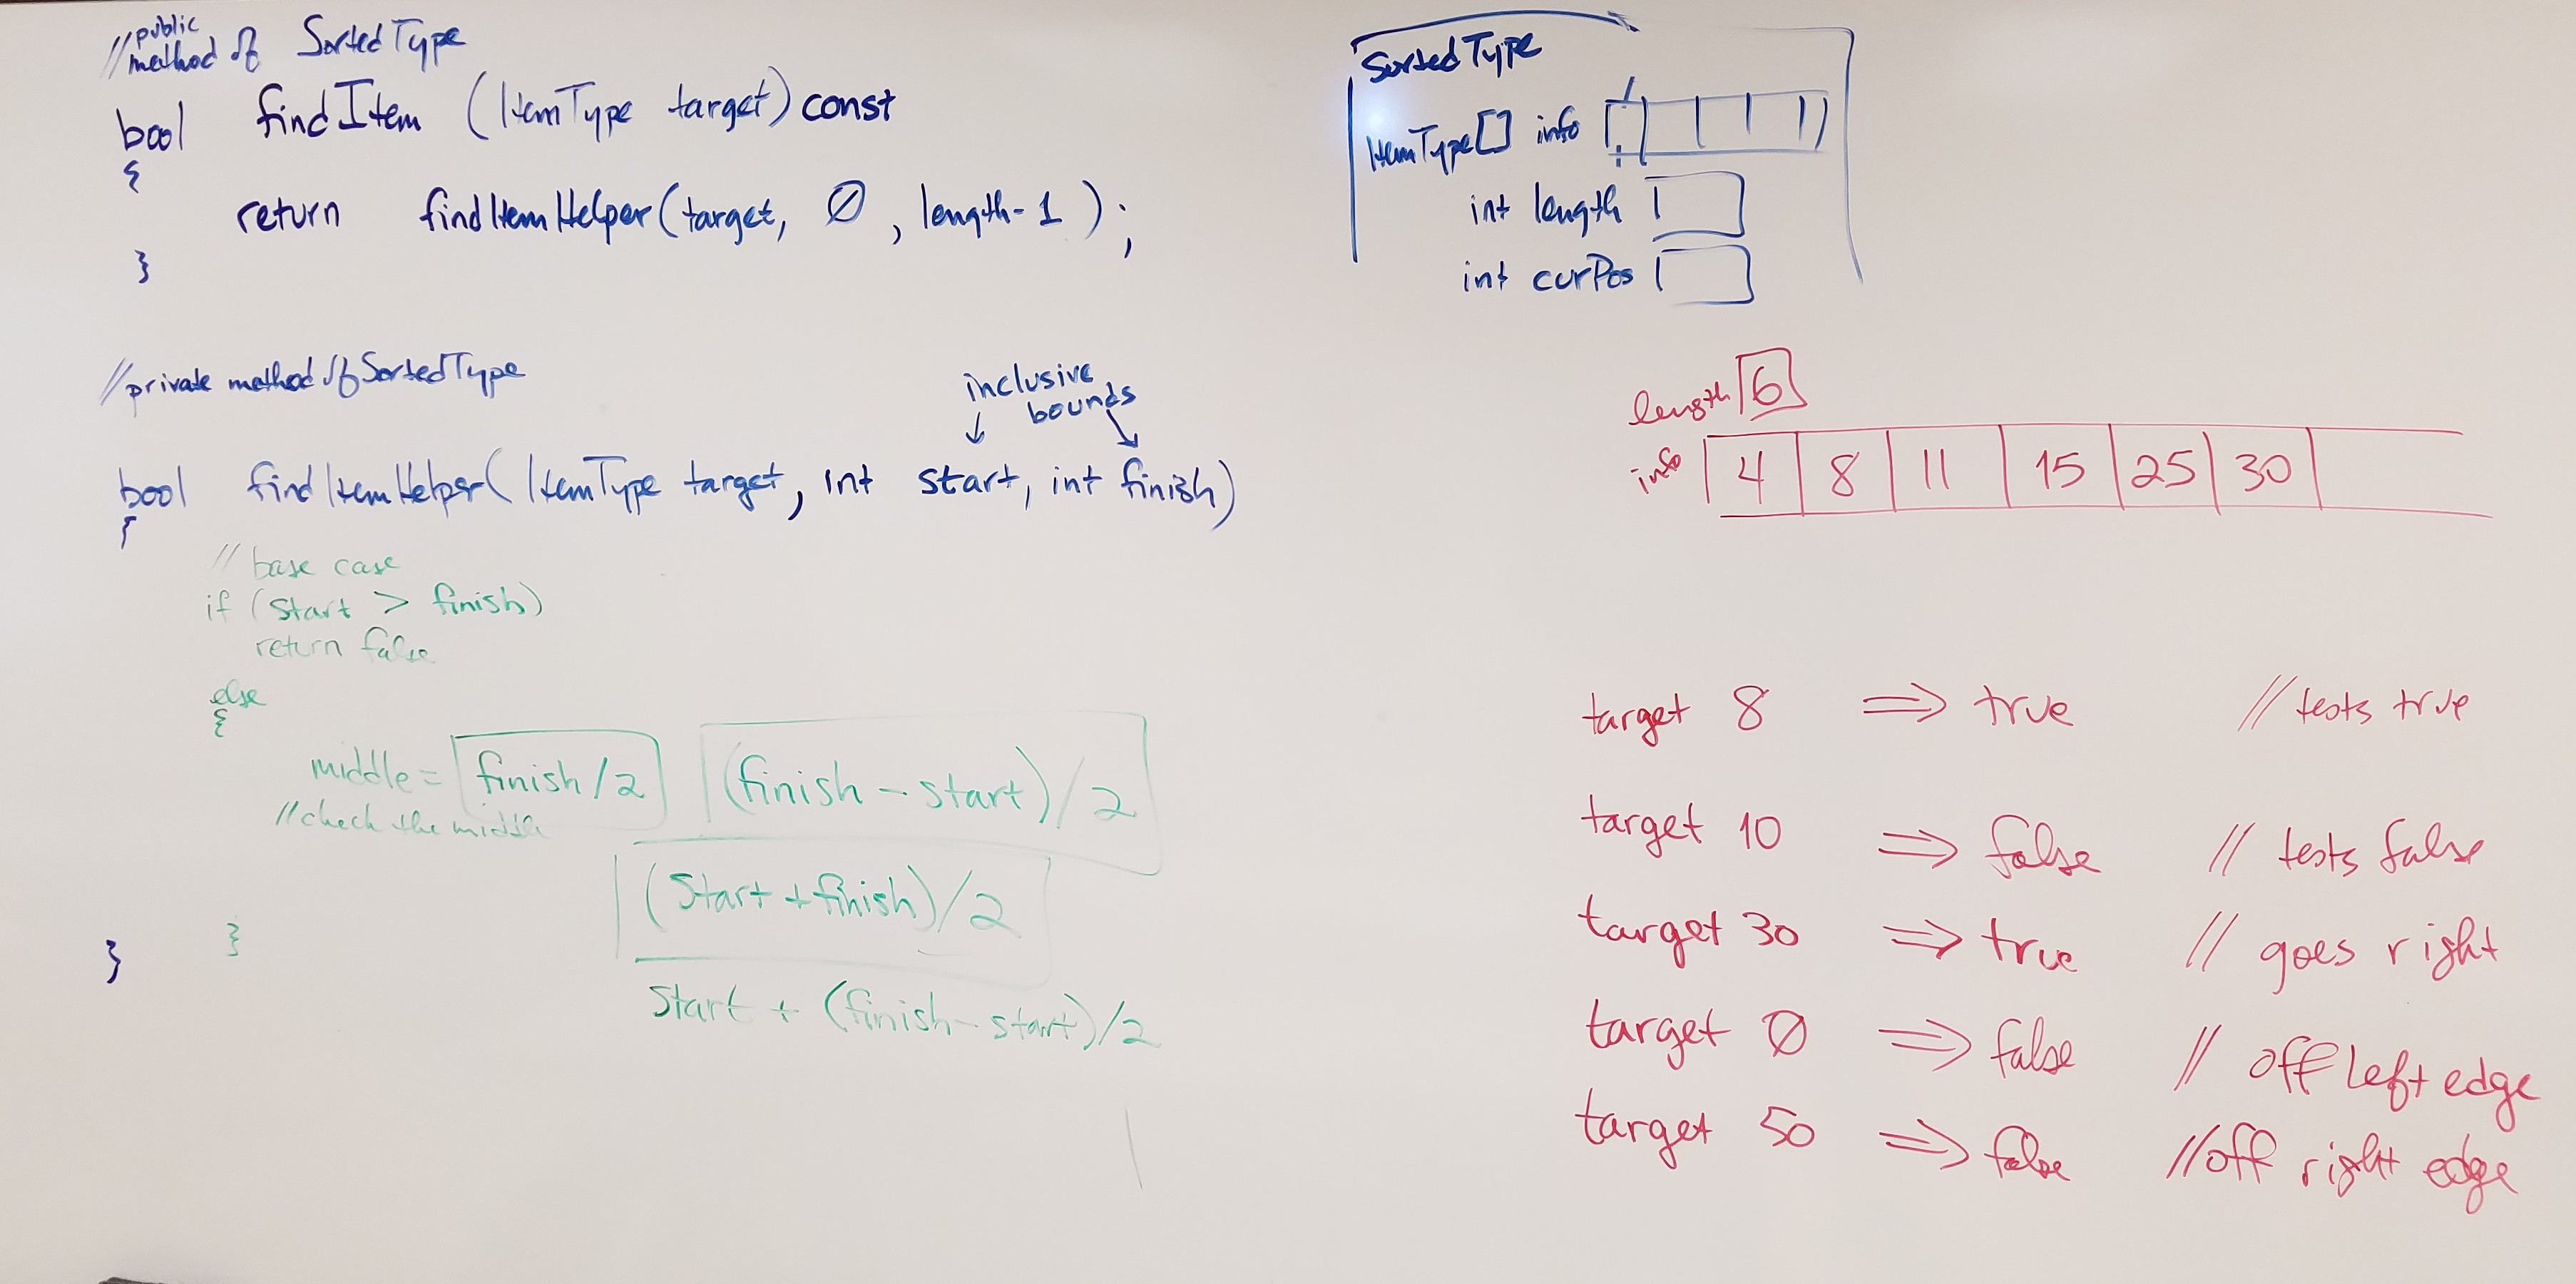 //public
method of SortedType
bool findItem (ItemType target) const
{
return findItemHelper(target, 0, length-1);
}
//private method of SortedType
inclusive
bounds
bool findItemHelper( ItemType target, int start, int finish)
{
// base case
if (start > finish)
return false
else
{
middle = finish/2 (finish - start)/2
//check the middle
(start + finish)/2
}
}
start + (finish-start)/2
SortedType
ItemType[] info
int length
int curPos
length 6
info 4 8 11 15 25 30
target 8 ⇒ true // tests true
target 10 ⇒ false // tests false
target 30 ⇒ true // goes right
target 0 ⇒ false // off left edge
target 50 ⇒ false //off right edge